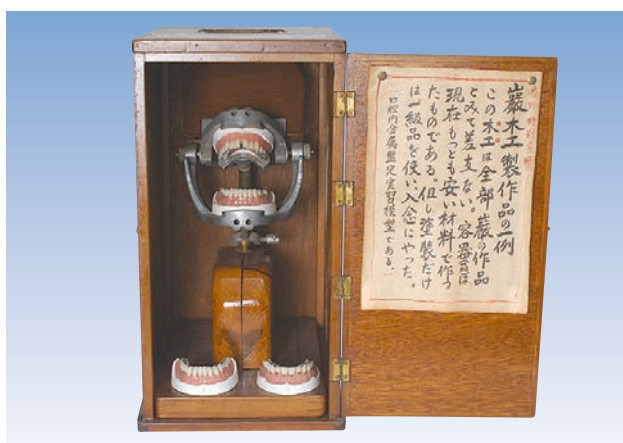 巌木工製作品の一例
この木工は全部巌の作品
とみて差支ない。容器は
現在もっとも安い材料で作っ
たものである。但し塗装だけ
は一級品を使い、入念にやった。
(口腔内金属鑑定実習模型である。)